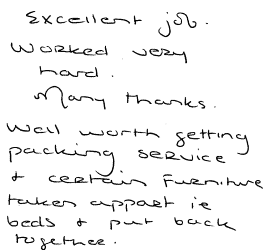 Excellent job.
Worked very
hard.
Many thanks.
Well worth getting
packing service
& certain furniture
taken appart ie
beds & put back
together.